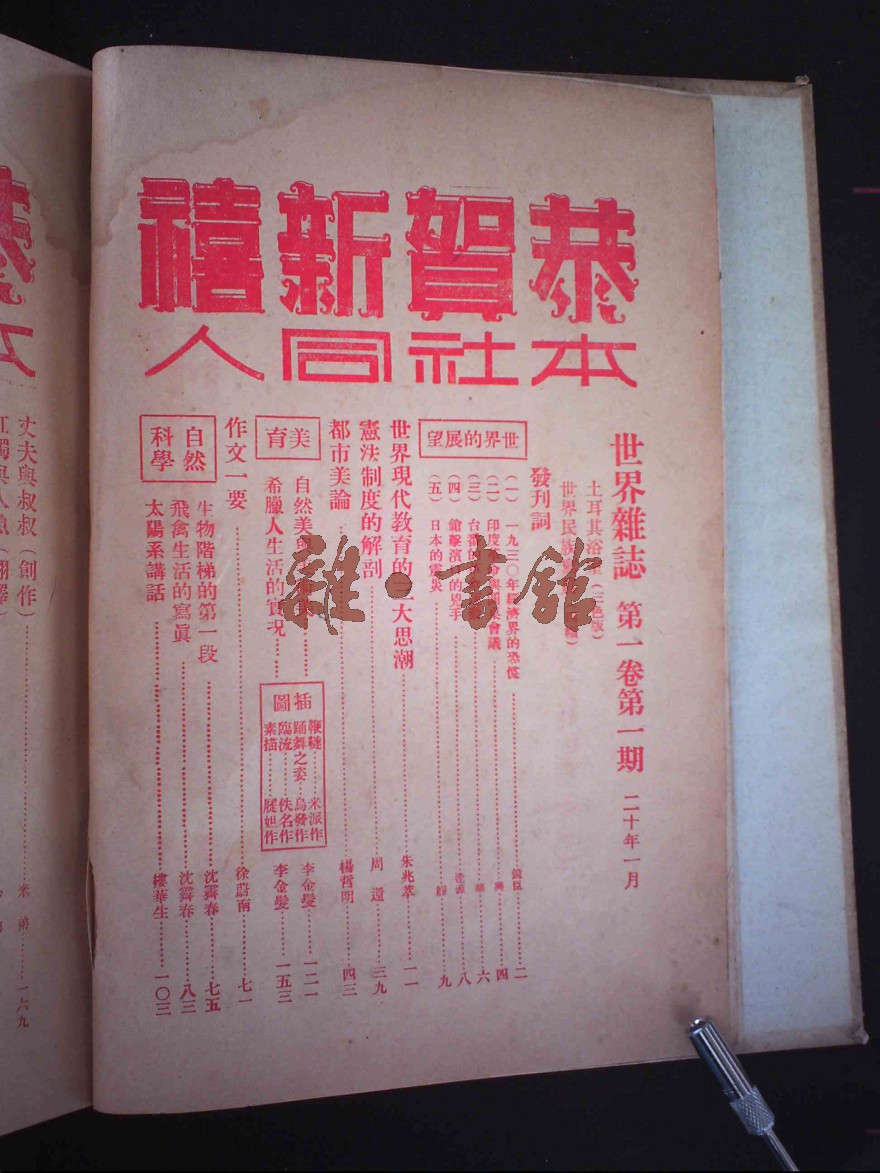 恭賀新禧
本社同人
世界雜誌 第一卷第一期 二十年一月
土耳其浴
世界民族
發刊詞
世界的展望
(一)一九三〇年經濟界的恐慌……二
(二)印度會議……四
(三)台番的……六
(四)鎗擊濱口的兇手……八
(五)日本的震災……九
世界現代教育的三大思潮……朱兆萃……一一
憲法制度的解剖……周還……三九
都市美論……楊哲明……四三
美育
自然美與……李金髮……一二一
希臘人生活的實况……李金髮……一五三
插圖
鞦韆……米派作
踊舞之姿……烏發作
臨流……佚名作
素描……屣妲作
作文一要……徐蔚南……七一
自然科學
生物階梯的第一段……沈霽春……七五
飛禽生活的寫眞……沈霽春……八三
太陽系講話……樓華生……一〇三
丈夫與叔叔(創作)……一六九
米弟
雜·書館